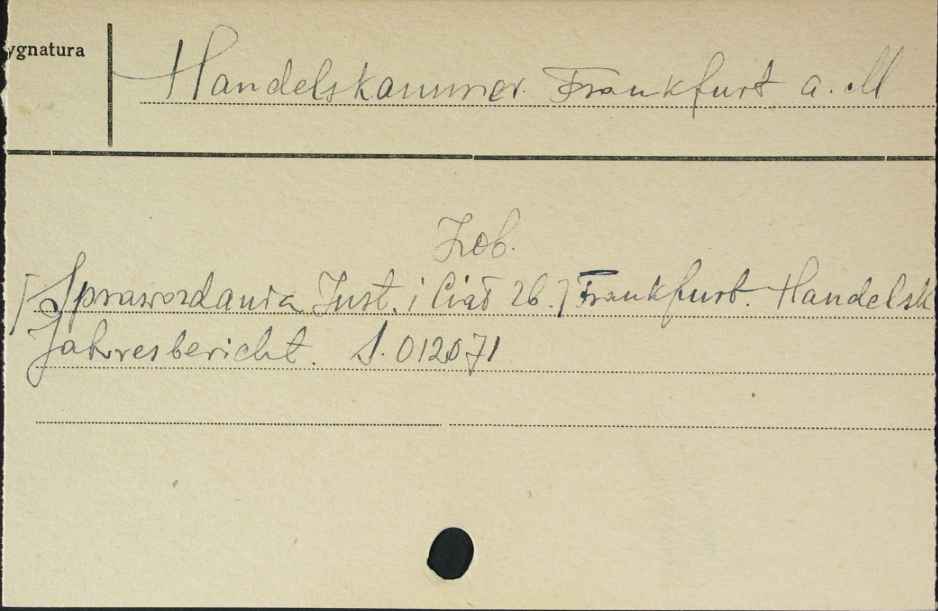 ygnatura
Handelskammer Frankfurt a. M
Zob.
[Sprawozdania Inst. i Ciał Zb.] Frankfurt. Handelsk
Jahresbericht. S. 012071